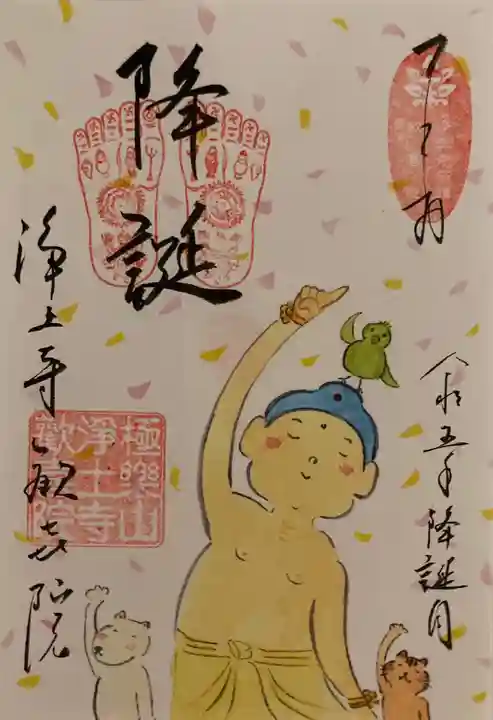 奉拝
令和五年降誕月
降誕
極樂山
浄土寺
歡喜院
浄土寺歓喜院